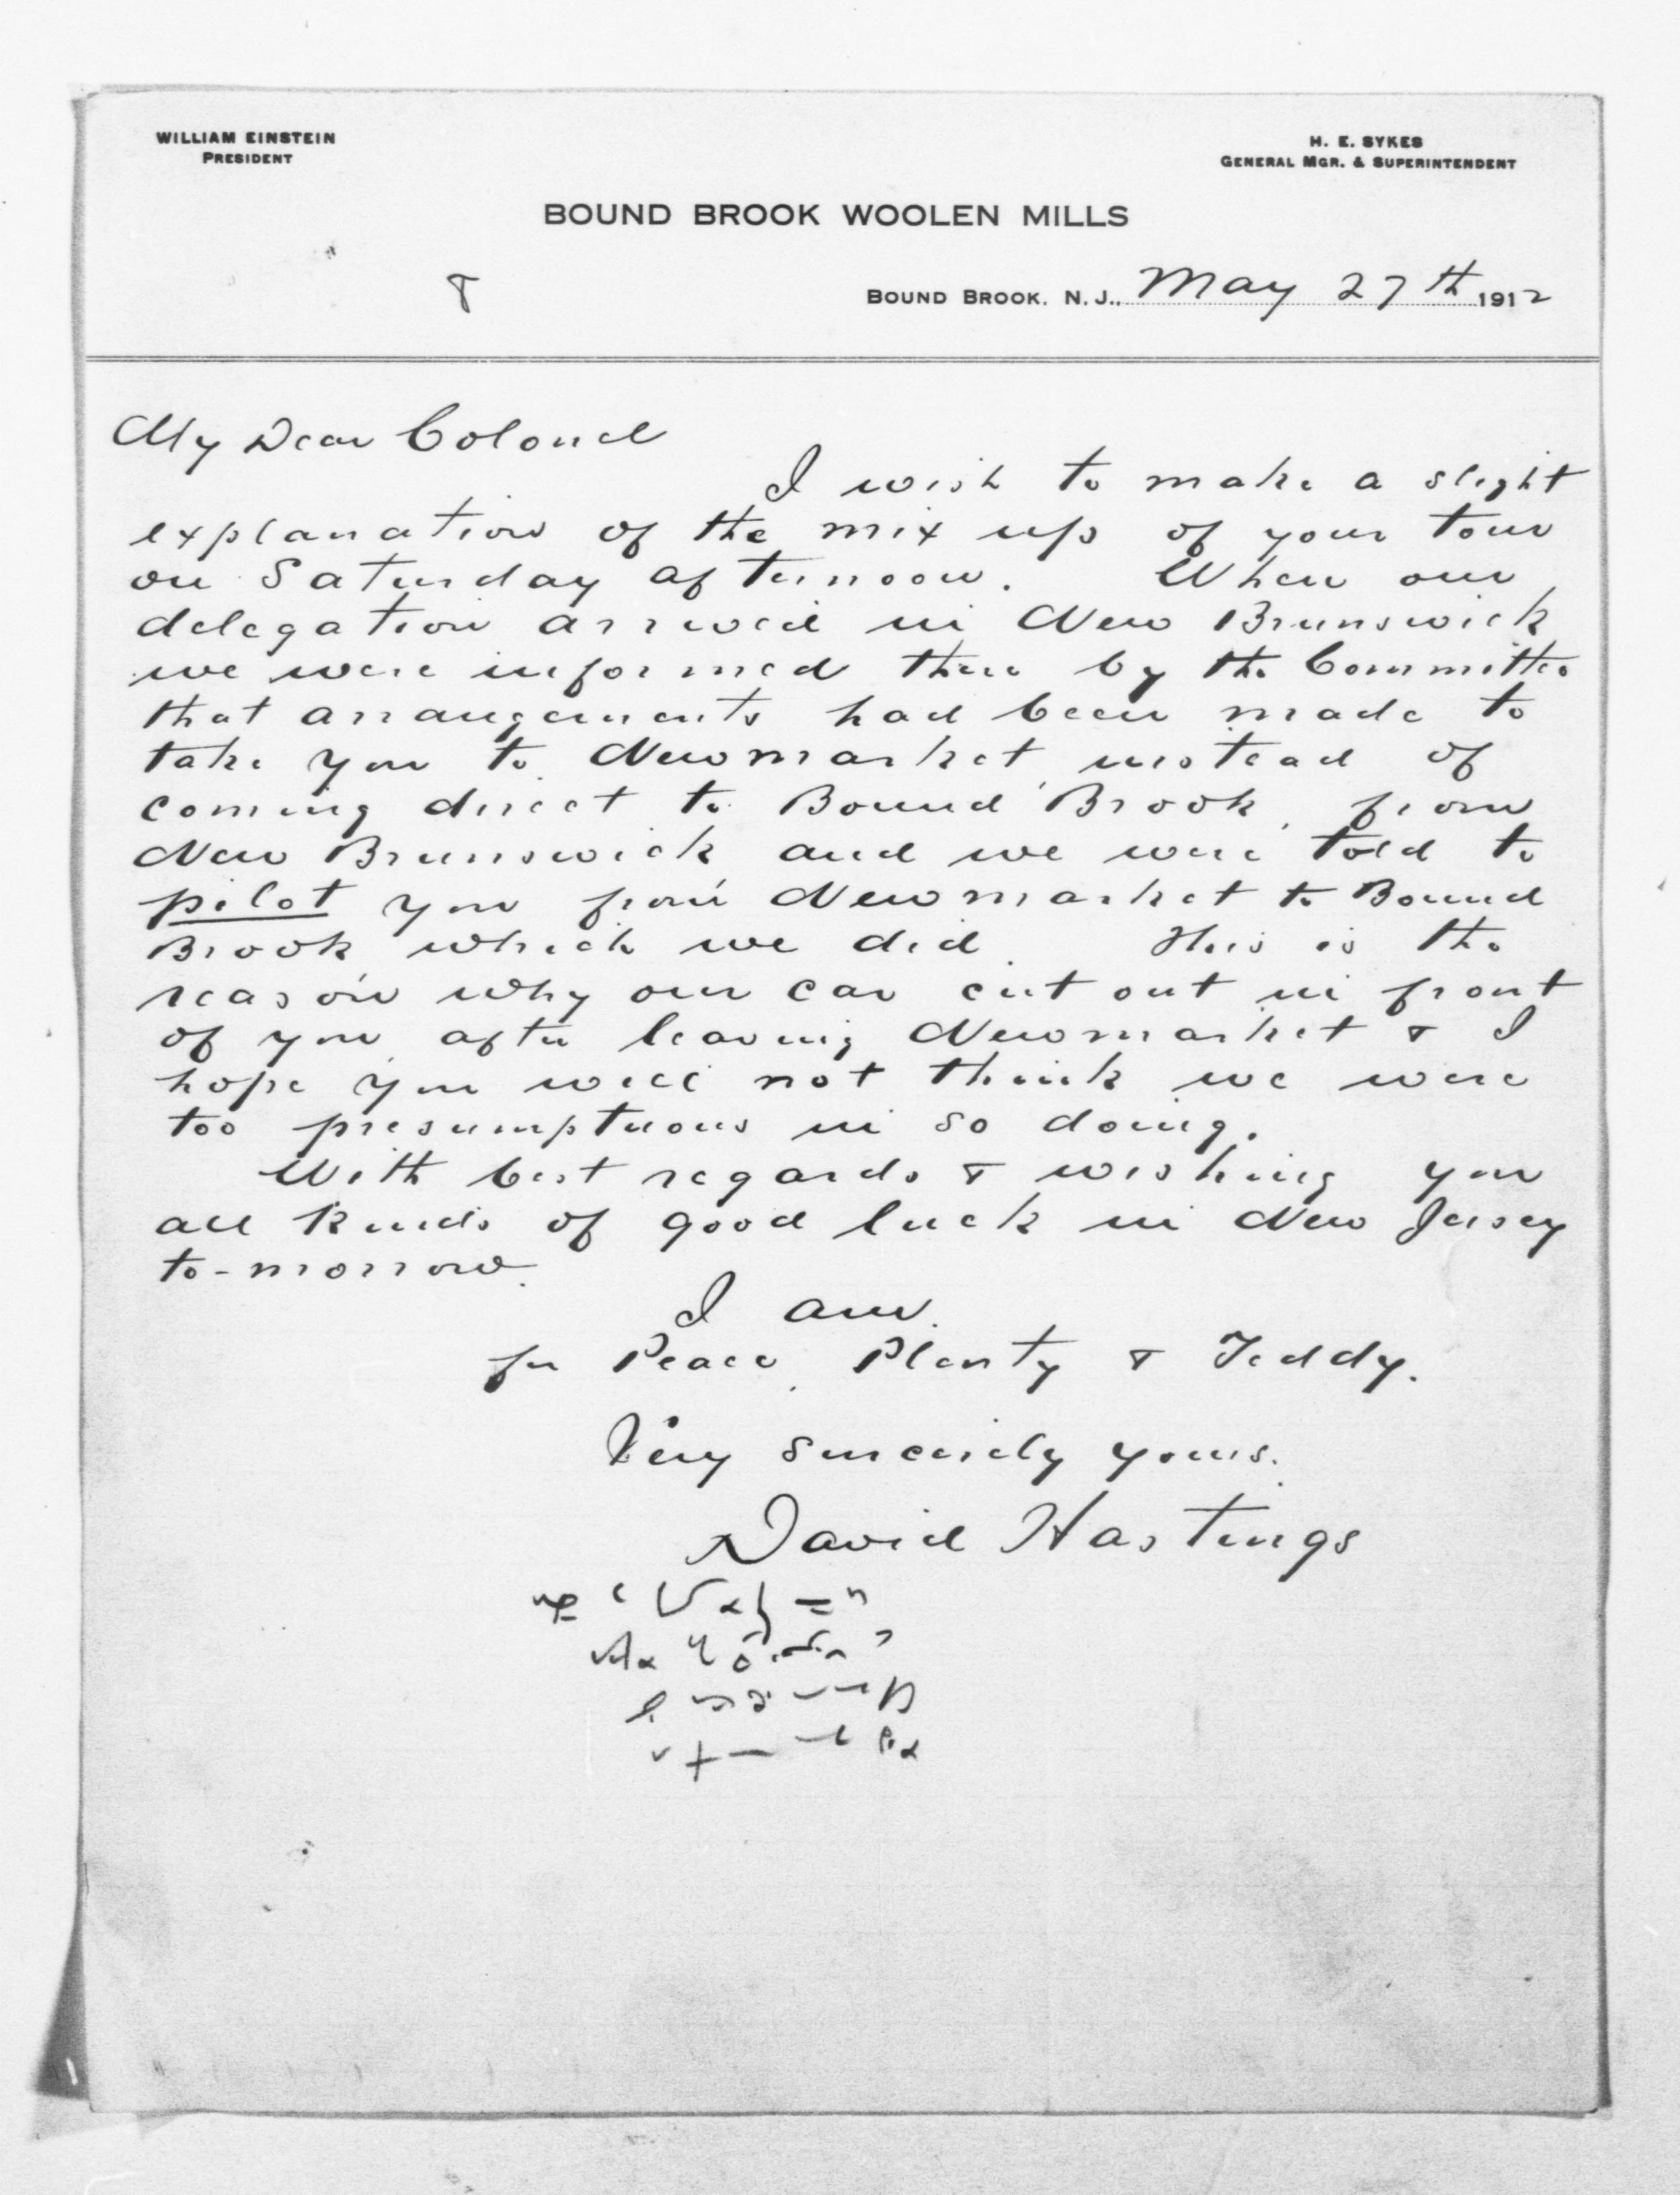 WILLIAM EINSTEIN
PRESIDENT
H. E. SYKES
GENERAL MGR. & SUPERINTENDENT
BOUND BROOK WOOLEN MILLS
BOUND BROOK. N. J., May 27th 1912
My Dear Colonel
I wish to make a slight
explanation of the mix up of your tour
on Saturday afternoon. When our
delegation arrived in New Brunswick
we were informed there by the Committee
that arrangements had been made to
take you to Newmarket instead of
coming direct to Bound Brook from
New Brunswick and we were told to
pilot you from Newmarket to Bound
Brook which we did. This is the
reason why our car cut out in front
of you after leaving Newmarket & I
hope you will not think we were
too presumptuous in so doing.
With best regards & wishing you
all kinds of good luck in New Jersey
to-morrow.
I am.
for Peace, Plenty & Teddy.
Very sincerely yours.
David Hastings